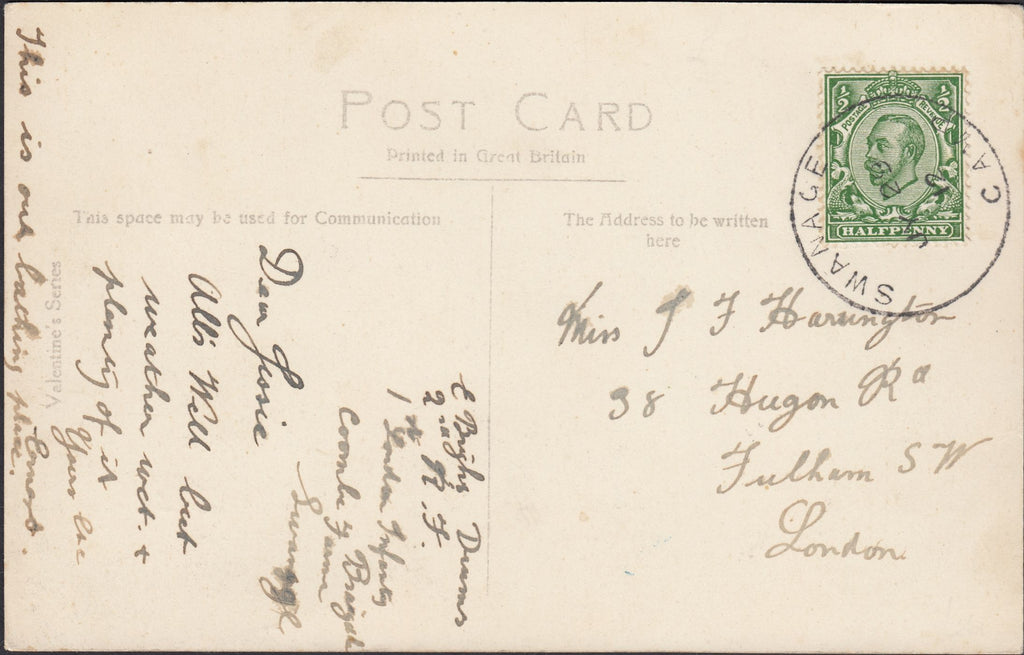 POST CARD
Printed in Great Britain
This space may be used for Communication
The Address to be written
here
½ ½
POSTAGE REVENUE
HALFPENNY
SWANAGE CAMP
JY 29
12
Miss J F Harrington
38 Hugon Rd
Fulham S W
London
E Bright Drums
2nd R. F.
1st London Infantry
Brigade
Coombe Farm
Swanage
Dear Jessie
All's Well but
weather wet. &
plenty of it
Yours &c
Ernest.
This is our bathing place.
Valentine's Series